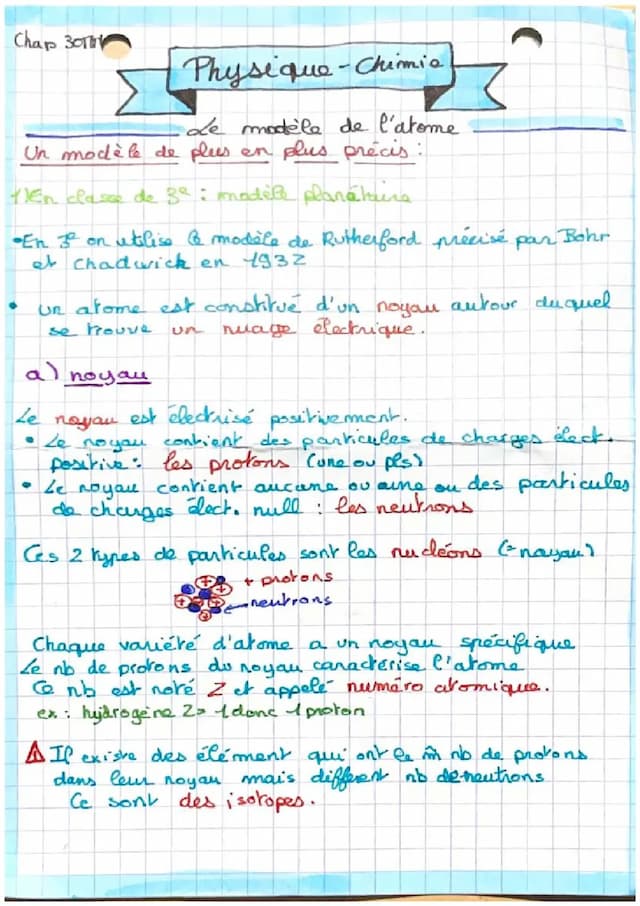 Chap 3
Physique-Chimie
Le modèle de l'atome
Un modèle de plus en plus précis :
1) En classe de 3e : modèle planétaire
• En 3e on utilise le modèle de Rutherford précisé par Bohr
et Chadwick en 1932
• un atome est constitué d'un noyau autour duquel
se trouve un nuage électrique.
a) noyau
Le noyau est électrisé positivement.
• Le noyau contient des particules de charges élect.
positive : les protons (une ou pls)
• Le noyau contient aucune ou une ou des particules
de charges élect. null : les neutrons
Ces 2 types de particules sont les nucléons (= noyau)
+ protons
neutrons
Chaque variété d'atome a un noyau spécifique
Le nb de protons du noyau caractérise l'atome
Ce nb est noté Z et appelé numéro atomique.
ex : hydrogène Z= 1 donc 1 proton
Il existe des élément qui ont le m̂ nb de protons
dans leur noyau mais different nb de neutrons
Ce sont des isotopes.